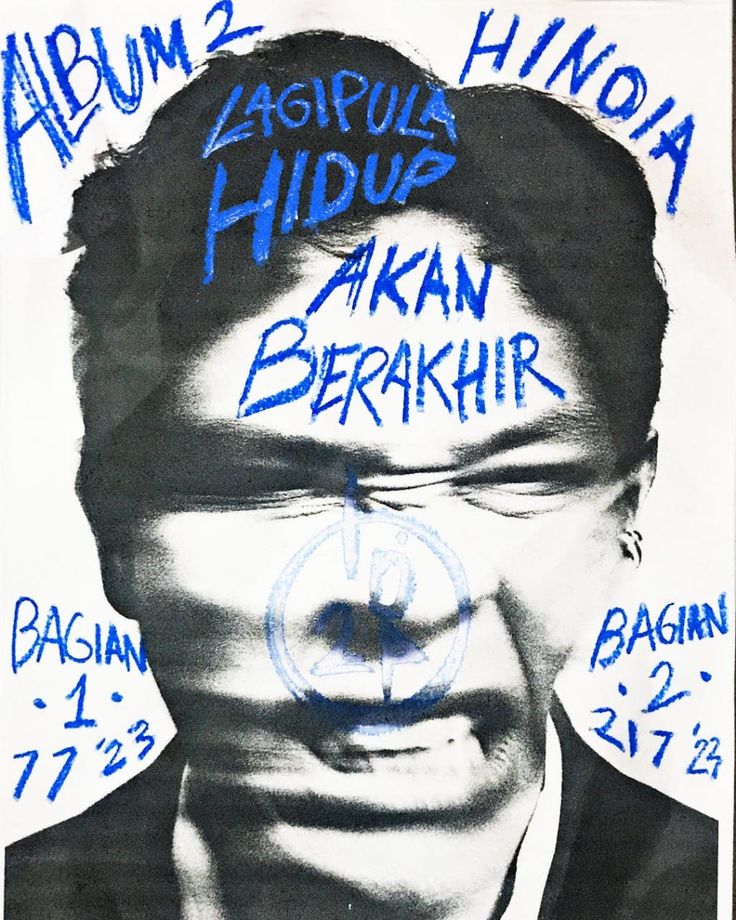 ALBUM 2
HINDIA
LAGIPULA
HIDUP
AKAN
BERAKHIR
BAGIAN
·1·
77'23
BAGIAN
·2·
217'23